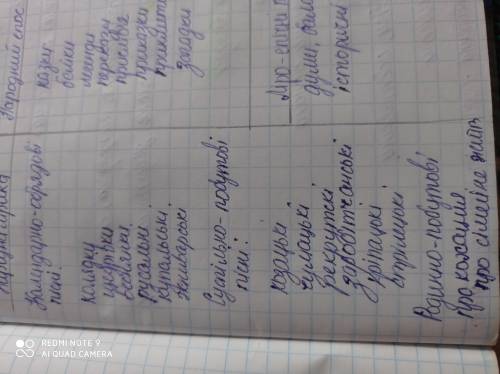 Народний епос
казки
байки
легенди
перекази
прислів'я
приказки
прикмети
загадки
Ліро-епічні
думи,
історичні
лірика
Календарно-обрядові
пісні:
колядки
щедрівки
веснянки
русальні
купальські
жниварські
Суспільно-побутові
пісні:
козацькі
чумацькі
рекрутскі
заробітчанські
кріпацькі
стрілецькі
Родинно-побутові
про кохання
про сімейне життя
REDMI NOTE 9
AI QUAD CAMERA